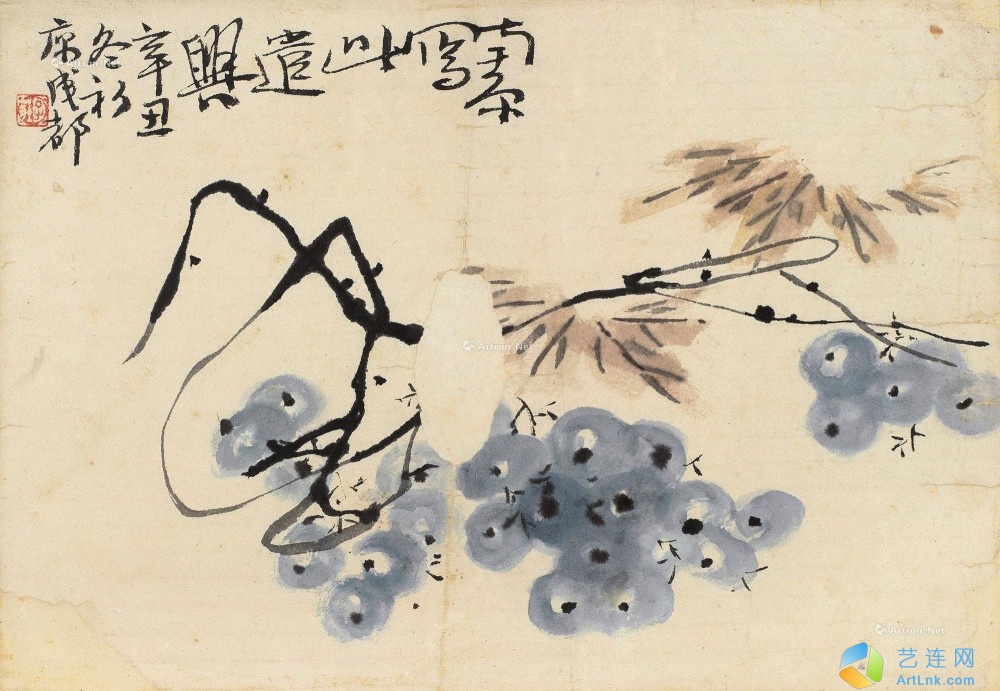 南原
寫
此
遣
興
辛丑
冬初
成都
Artron.Net
Artron.Net
艺连网
ArtLnk.com